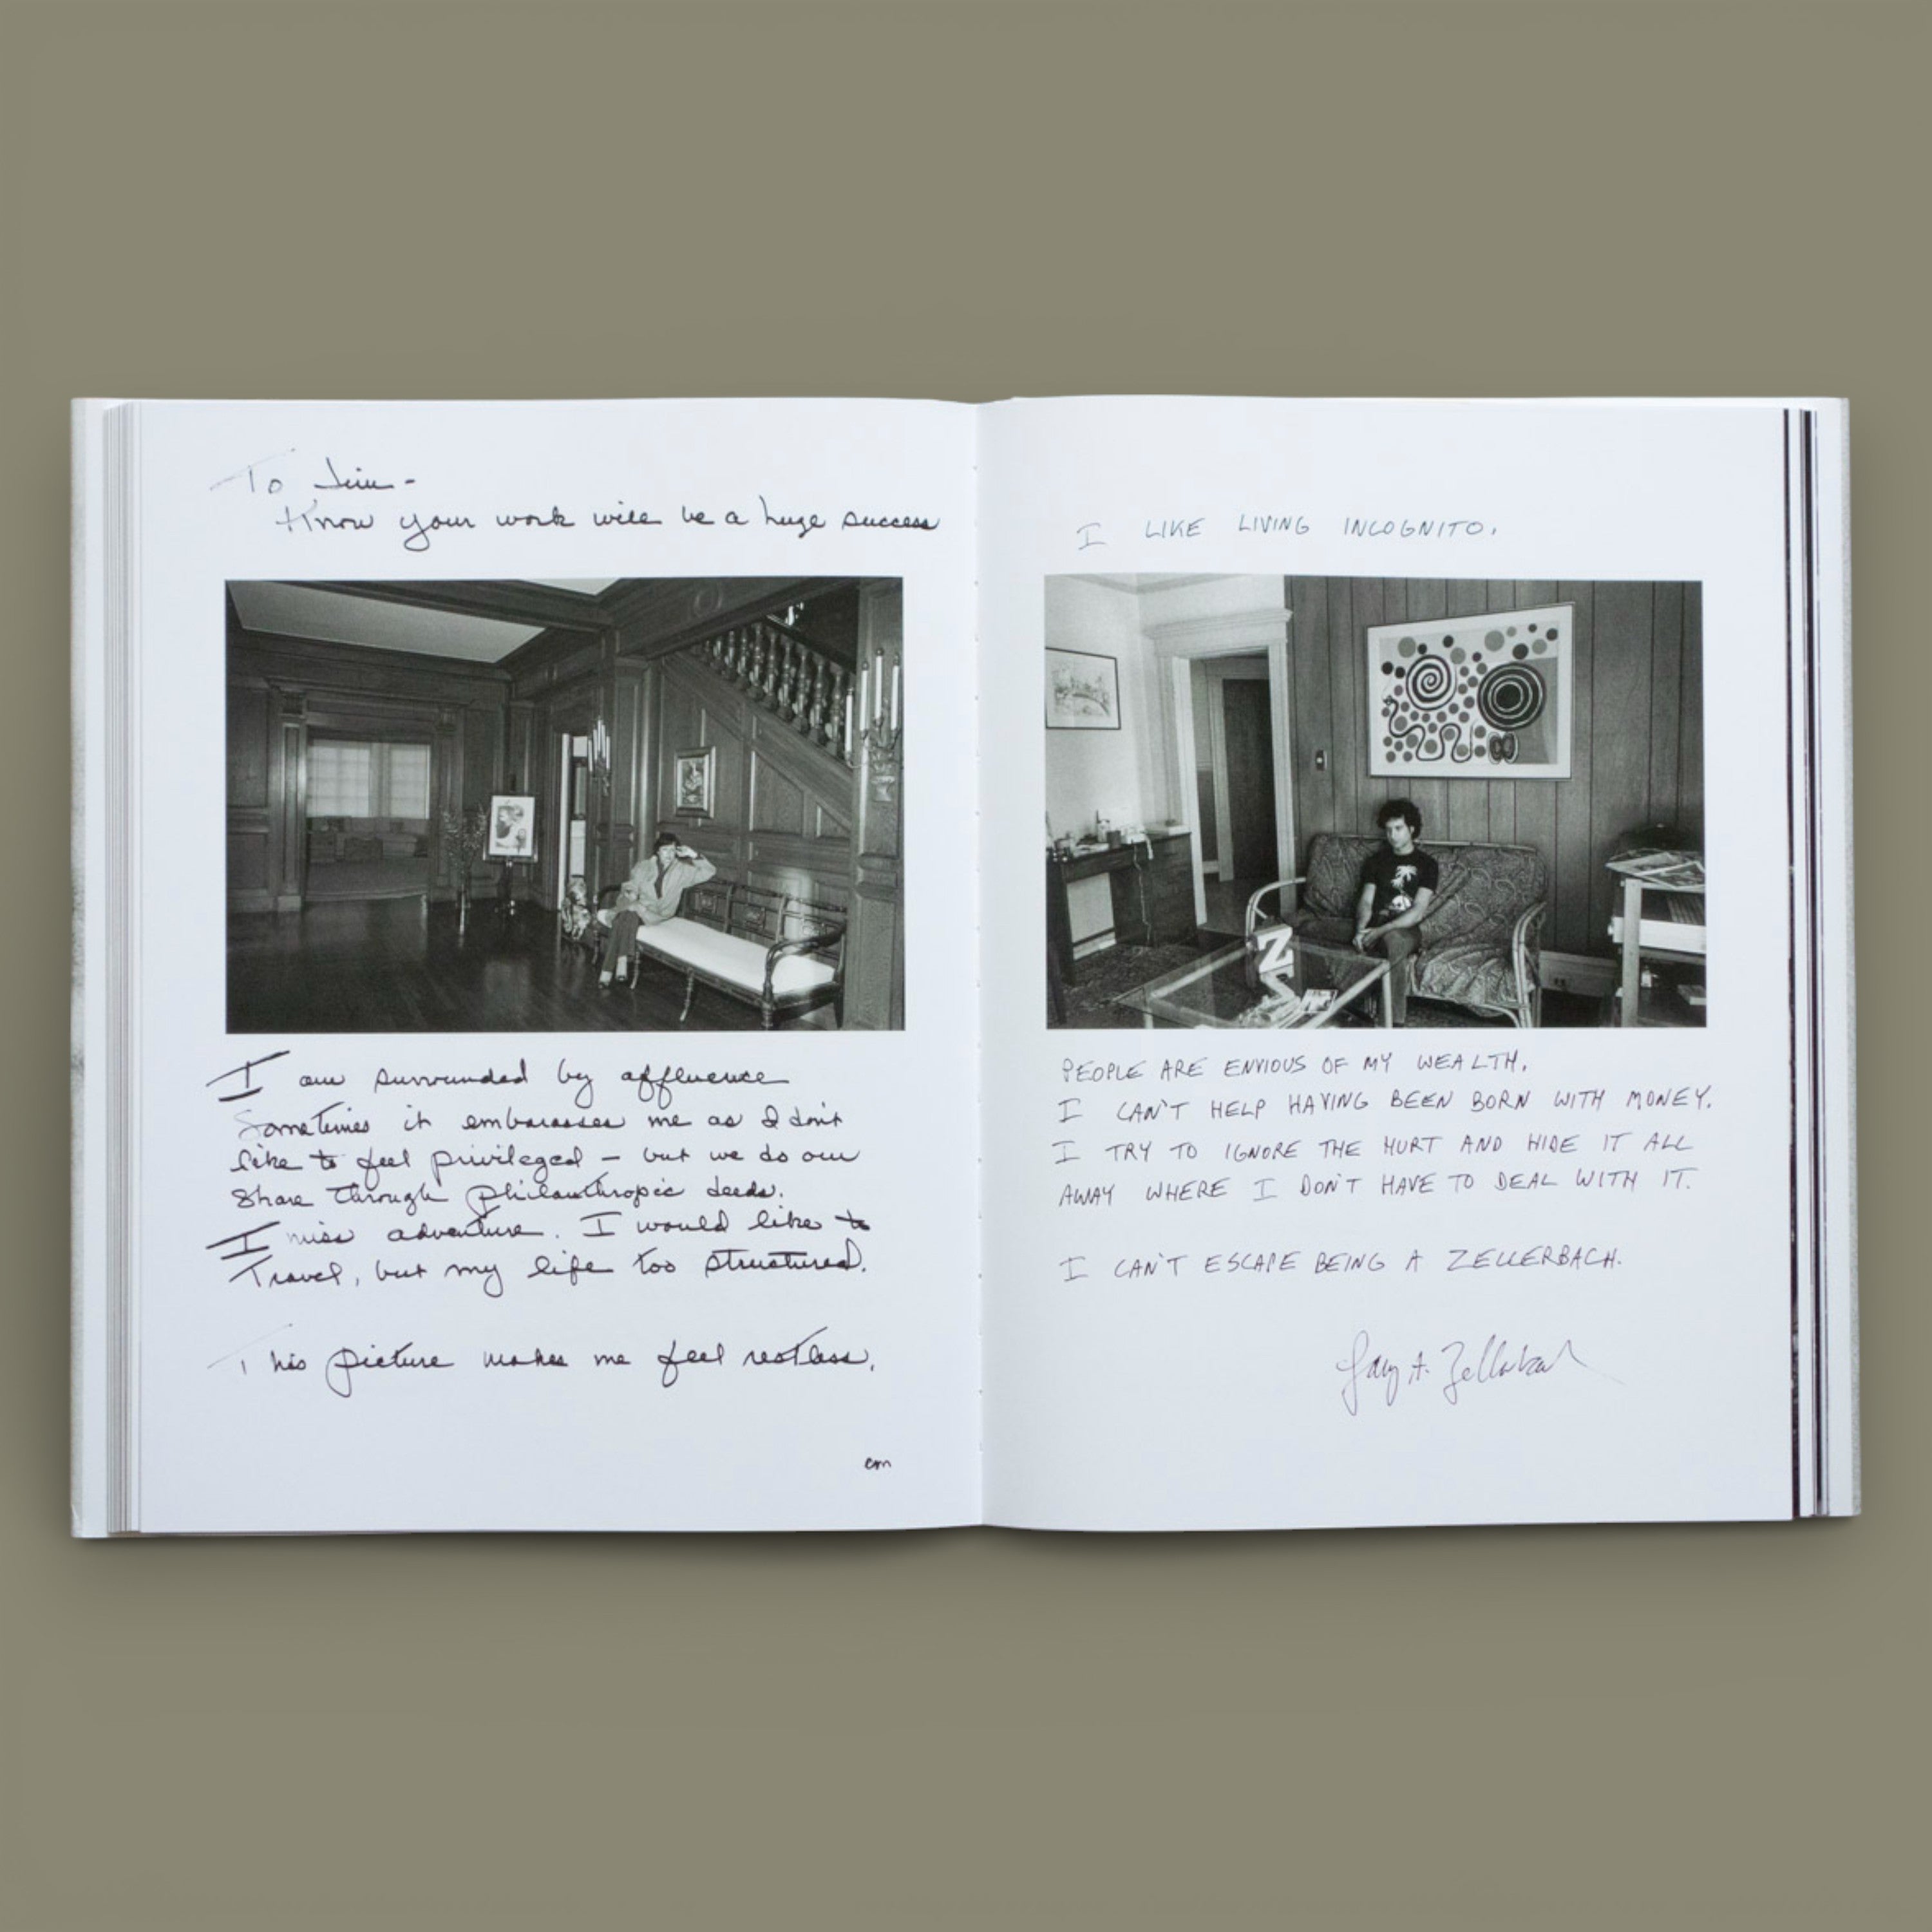 To Jim-
Know your work will be a huge success
I am surrounded by affluence
Sometimes it embarasses me as I don't
like to feel privileged - but we do our
share through philanthropic deeds.
I miss adventure. I would like to
Travel, but my life too structured.
This picture makes me feel restless.
em
I LIKE LIVING INCOGNITO.
Z
PEOPLE ARE ENVIOUS OF MY WEALTH.
I CAN'T HELP HAVING BEEN BORN WITH MONEY.
I TRY TO IGNORE THE HURT AND HIDE IT ALL
AWAY WHERE I DON'T HAVE TO DEAL WITH IT.
I CAN'T ESCAPE BEING A ZELLERBACH.
Gary A. Zellerbach